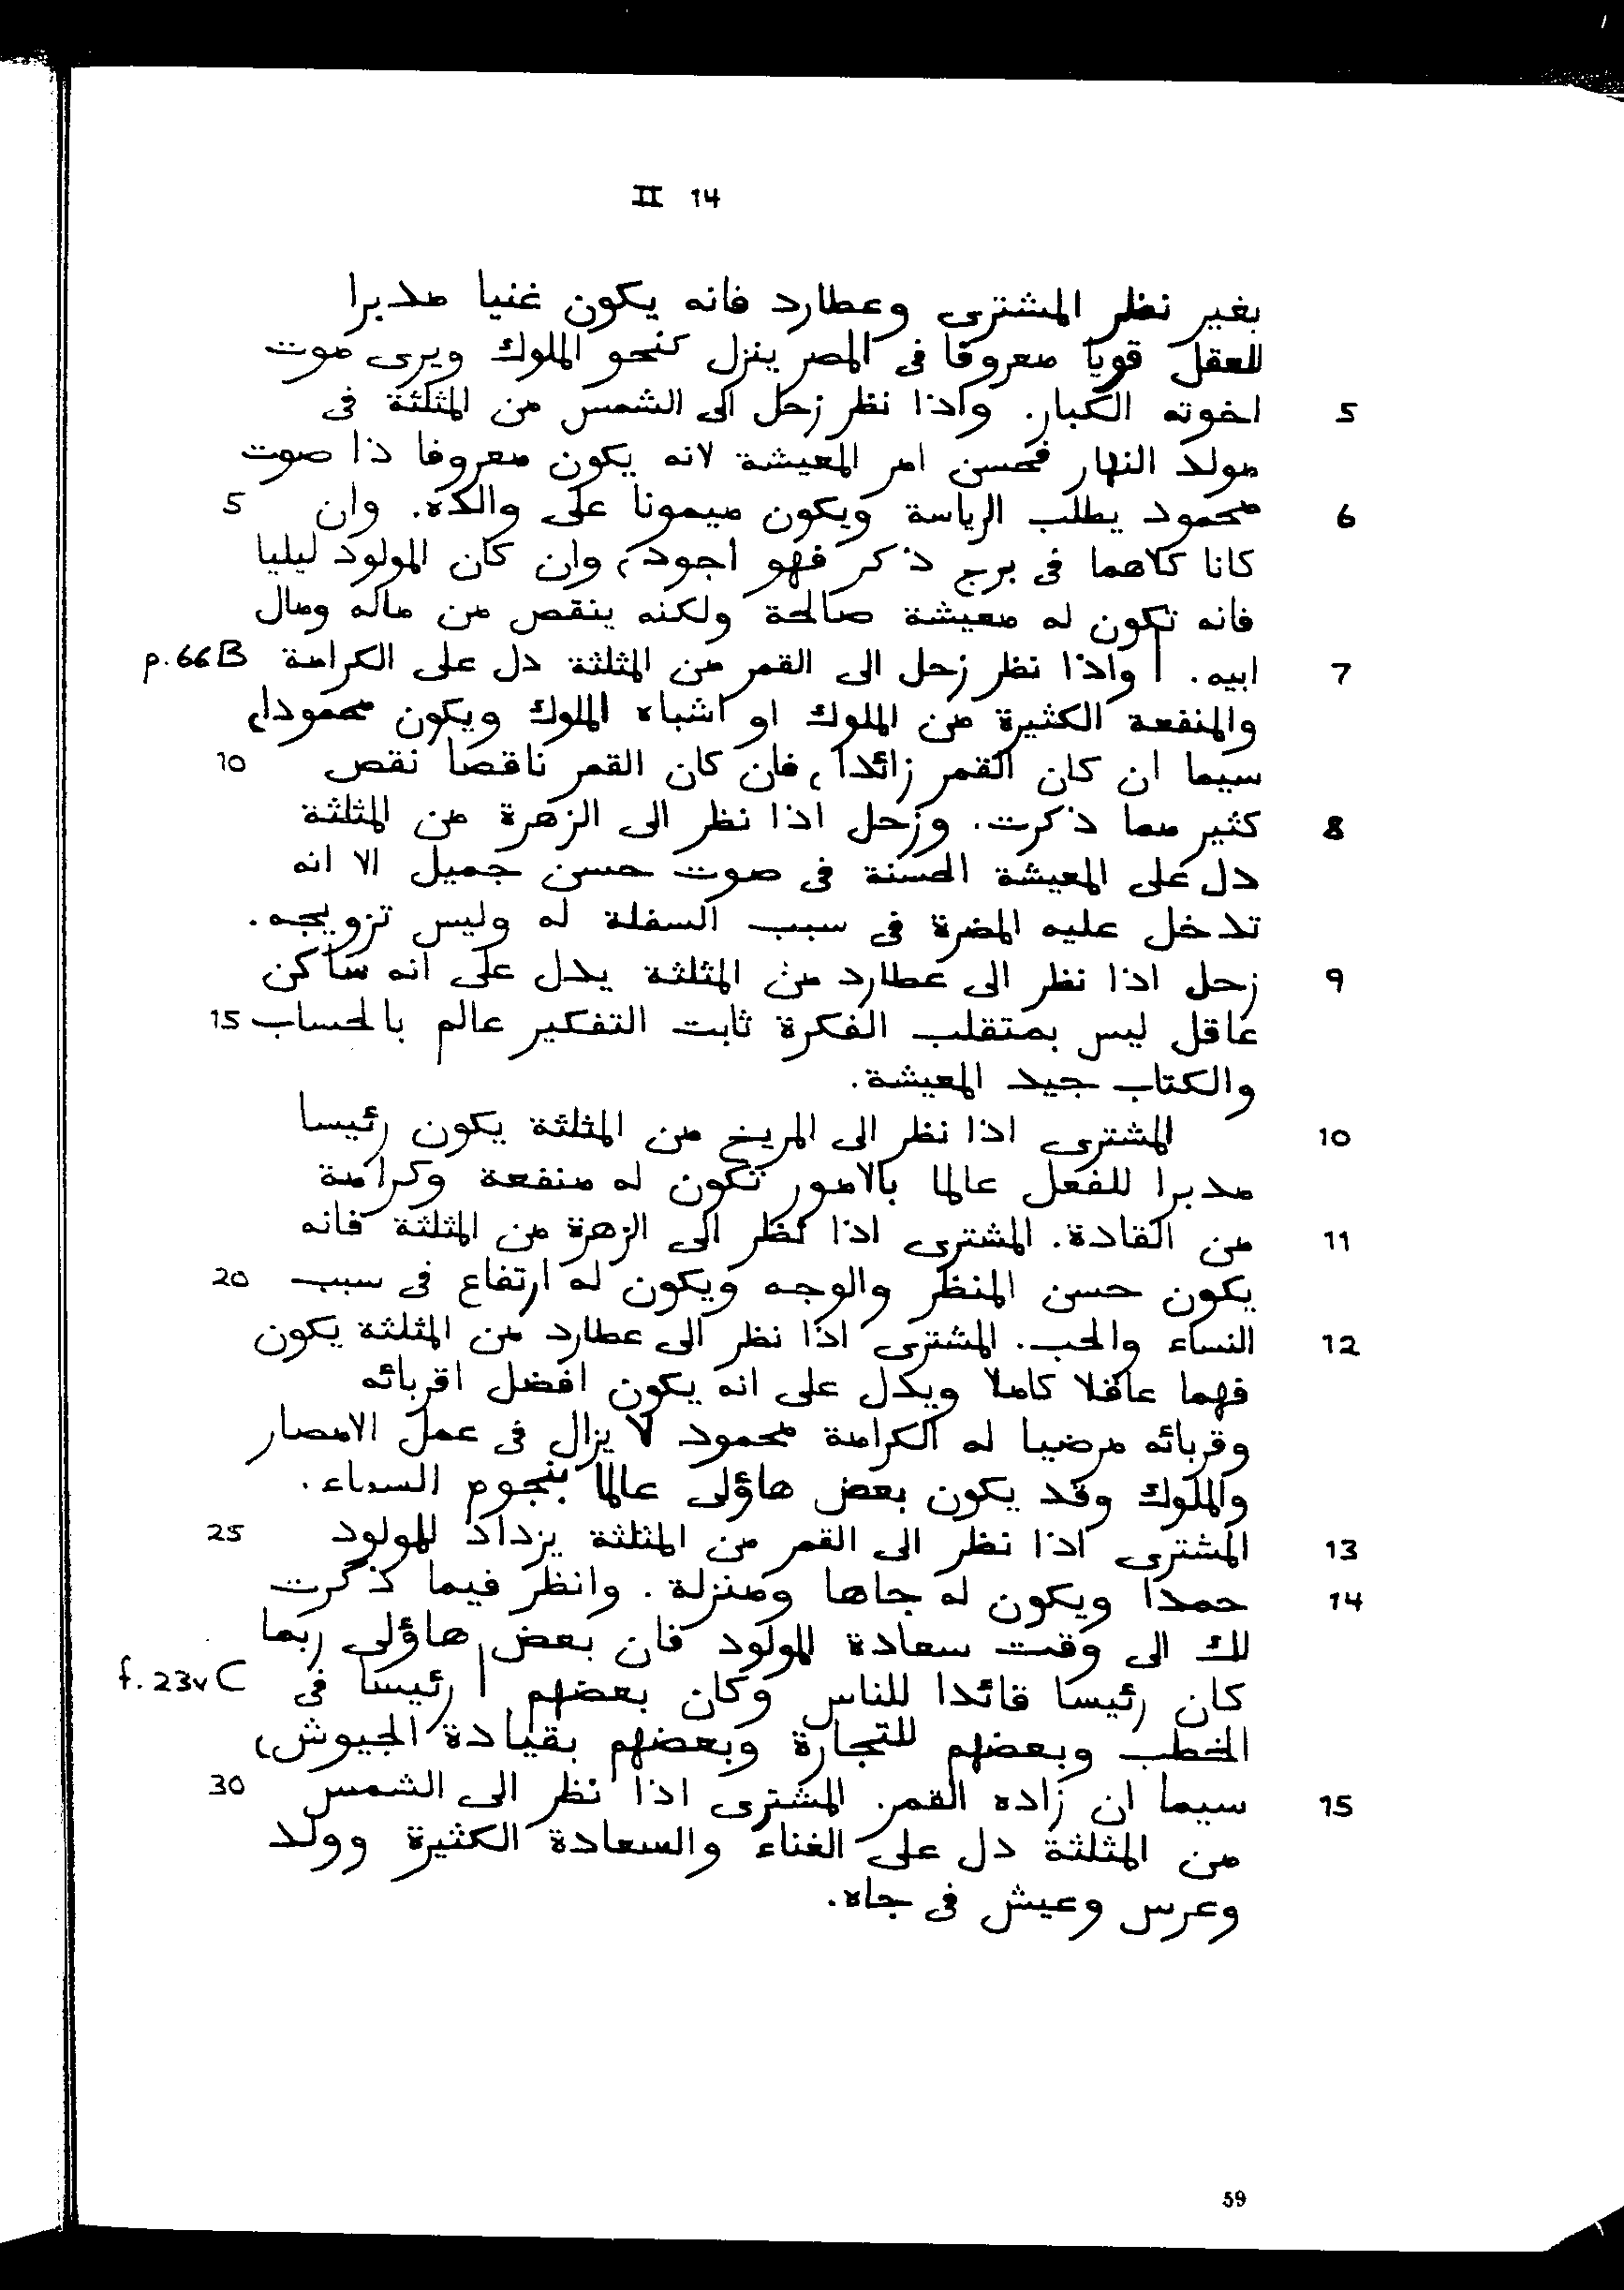 II 14
بغير نظر المشترى وعطارد فانه يكون غنيا مدبرا
للعقل قويا معروفا فى المصر ينزل كنحو الملوك ويرى موت
5 اخوته الكبار. واذا نظر زحل الى الشمس من المثلثة فى
مولد النهار فحسن امر المعيشة لانه يكون معروفا ذا صوت
6 محمود يطلب الرياسة ويكون ميمونا على والده. وان 5
كانا كلاهما فى برج ذكر فهو اجود، وان كان المولود ليليا
فانه تكون له معيشة صالحة ولكنه ينقص من ماله ومال
7 ابيه. | واذا نظر زحل الى القمر من المثلثة دل على الكرامة p.66B
والمنفعة الكثيرة من الملوك او اشباه الملوك ويكون محمودا،
سيما ان كان القمر زائدا، فان كان القمر ناقصا نقص 10
8 كثير مما ذكرت. وزحل اذا نظر الى الزهرة من المثلثة
دل على المعيشة الحسنة فى صوت حسن جميل الا انه
تدخل عليه المضرة فى سبب السفلة له وليس تزويجه.
9 زحل اذا نظر الى عطارد من المثلثة يدل على انه ساكن
عاقل ليس بمتقلب الفكرة ثابت التفكير عالم بالحساب 15
والكتاب جيد المعيشة.
10 المشترى اذا نظر الى المريخ من المثلثة يكون رئيسا
مدبرا للفعل عالما بالامور تكون له منفعة وكرامة
11 من القادة. المشترى اذا نظر الى الزهرة من المثلثة فانه
يكون حسن المنظر والوجه ويكون له ارتفاع فى سبب 20
12 النساء والحب. المشترى اذا نظر الى عطارد من المثلثة يكون
فهما عاقلا كاملا ويدل على انه يكون افضل اقربائه
وقربائه مرضيا له الكرامة محمود لا يزال فى عمل الامصار
والملوك وقد يكون بعض هاؤلى عالما بنجوم السماء.
13 المشترى اذا نظر الى القمر من المثلثة يزداد للمولود 25
14 حمدا ويكون له جاها ومنزلة. وانظر فيما ذكرت
لك الى وقت سعادة المولود فان بعض هاؤلى ربما
كان رئيسا قائدا للناس وكان بعضهم | رئيسا فى f. 23v C
الخطب وبعضهم للتجارة وبعضهم بقيادة الجيوش،
15 سيما ان زاده القمر. المشترى اذا نظر الى الشمس 30
من المثلثة دل على الغناء والسعادة الكثيرة وولد
وعرس وعيش فى جاه.
59